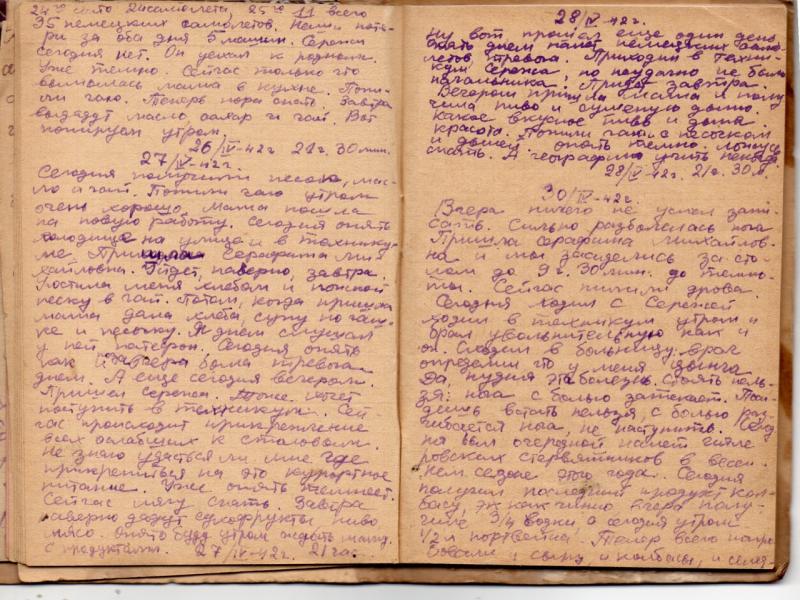 24го сбито 21 самолета, 25го 11 всего
35 немецких самолетов. Наши поте-
ри за оба дня 5 машин. Сережи
сегодня нет. Он уехал к родным.
Уже темно. Сейчас только что
вымылась мама в кухне. Попи-
ли чаю. Теперь пора спать. Завтра
выдадут масло, сахар и чай. Вот
попируем утром.
26/IV-42г. 21г. 30 мин.
27/IV-42г.
Сегодня получили песок, мас-
ло и чай. Попили чаю утром
очень хорошо. Мама пошла
на новую работу. Сегодня опять
холодище на улице и в технику-
ме. Пришла Серафима Ми-
хайловна. Уйдет, наверно, завтра.
Угостила меня хлебом и
песку в чай. Потом, когда пришла
мама дала хлеба, супу
и песочку. Я днем слушал
у ней патефон. Сегодня опять
как и вчера была тревога
днем. А еще сегодня вечером
Пришел Сережа. Тоже хочет
поступить в техникум. Сей-
час происходит прикрепление
всех слабых к столовым.
Не знаю удасться ли мне где
прикрепиться на это курортное
питание. Уже опять темнеет.
Сейчас лягу спать. Завтра
наверно дадут сухофрукты пиво
мясо. Опять буду утром ждать маму
с продуктами. 27/IV-42г. 21 час.
28/IV-42г.
Ну вот прошел еще один день.
Опять днем налет немецких само-
летов тревога. Приходил в техни-
кум Сережа, но неудачно не было
начальника. Придет завтра.
Вечером пришла мама и полу-
чила пиво и сушеную дыню.
Какое вкусное пиво и дыня.
Красота. Попили чаю с песочком
и дыней. Опять темно. Ложусь
спать. А географию учить некогда.
28/IV-42г. 21г. 30 м.
30/IV-42г.
Вчера ничего не успел запи-
сать. Сильно разболелась нога
Пришла Серафима Михайлов-
на и мы засиделись за сто-
лом до 9 г. 30 мин. до темно-
ты. Сейчас пилили дрова.
Сегодня ходил с Сережей
ходили в техникум утром и
брал увольнительную как и
он. Сходил в больницу. Врач
определил что у меня цынга
Да, нужна эта болезнь. Стоять нель-
зя: нога с болью затекает. Поси-
дишь встать нельзя, с болью раз-
гибается нога, не наступить.
ня был очередной налет гитле-
ровских стервятников в весен-
нем сезоне этого года. Сегодня
получил последний продукт кол-
басу, так как вчера полу-
чили 3/4 водки а сегодня утром
1/2 л портвейна. Теперь всего попро-
бовали и сыру, и колбасы, и